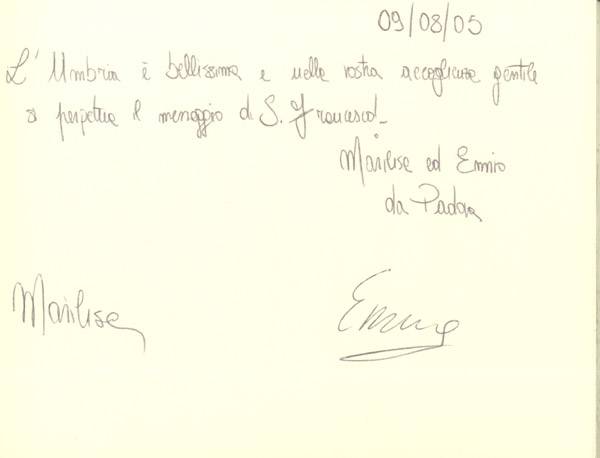 09/08/05
L'Umbria è bellissima e nella vostra accoglienza gentile
si perpetua il messaggio di S. Francesco.
Marilise ed Ennio
da Padova
Marilise
Ennio